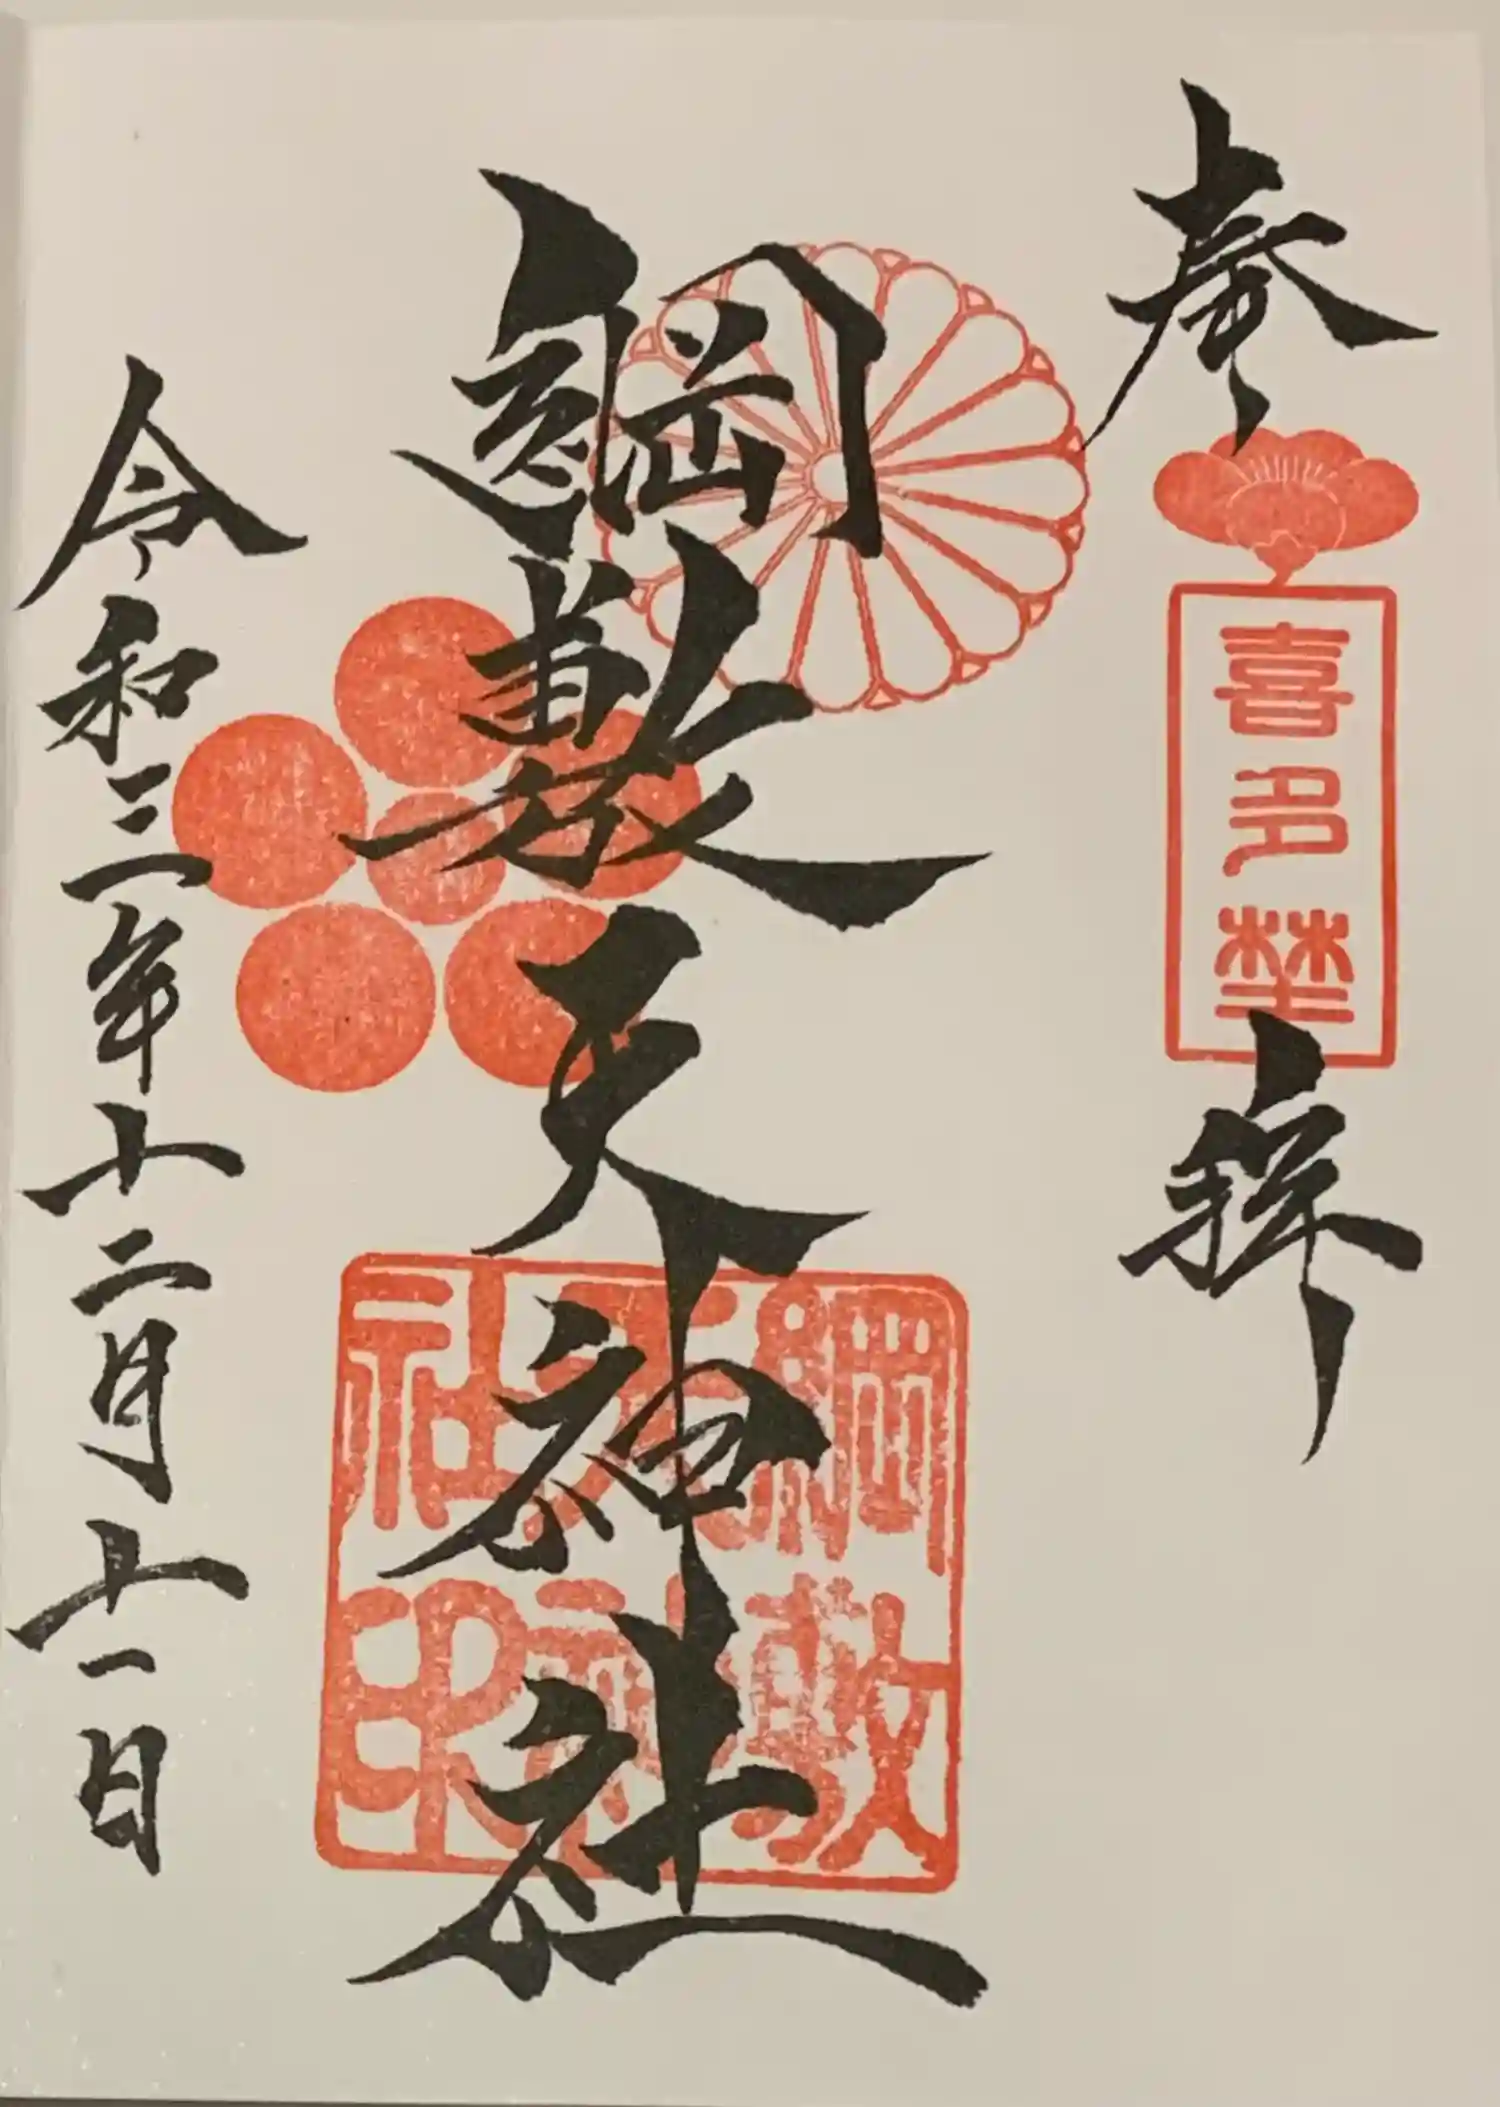 奉拝
喜多埜
綱敷天神社
綱敷
天神
社印
令和三年十二月十一日